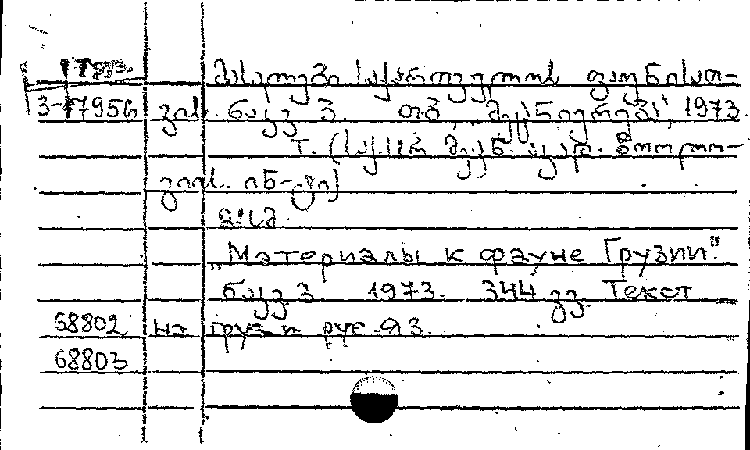 მასალები საქართველოს ფაუნისათ-
3-17956 ვის. ნაკვ. 3. თბ., „მეცნიერება", 1973.
т. (საქ. სსრ მეცნ. აკად. ზოოლო-
გიის ინ-ტი)
„Материалы к фауне Грузии".
ნაკვ. 3. 1973. 344 გვ. Текст
68802 на груз. и рус. яз.
68803